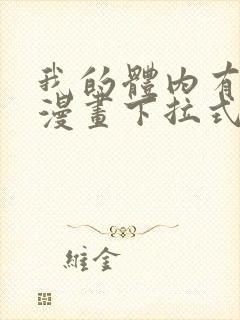 我的體內有
漫畫下拉式
維金